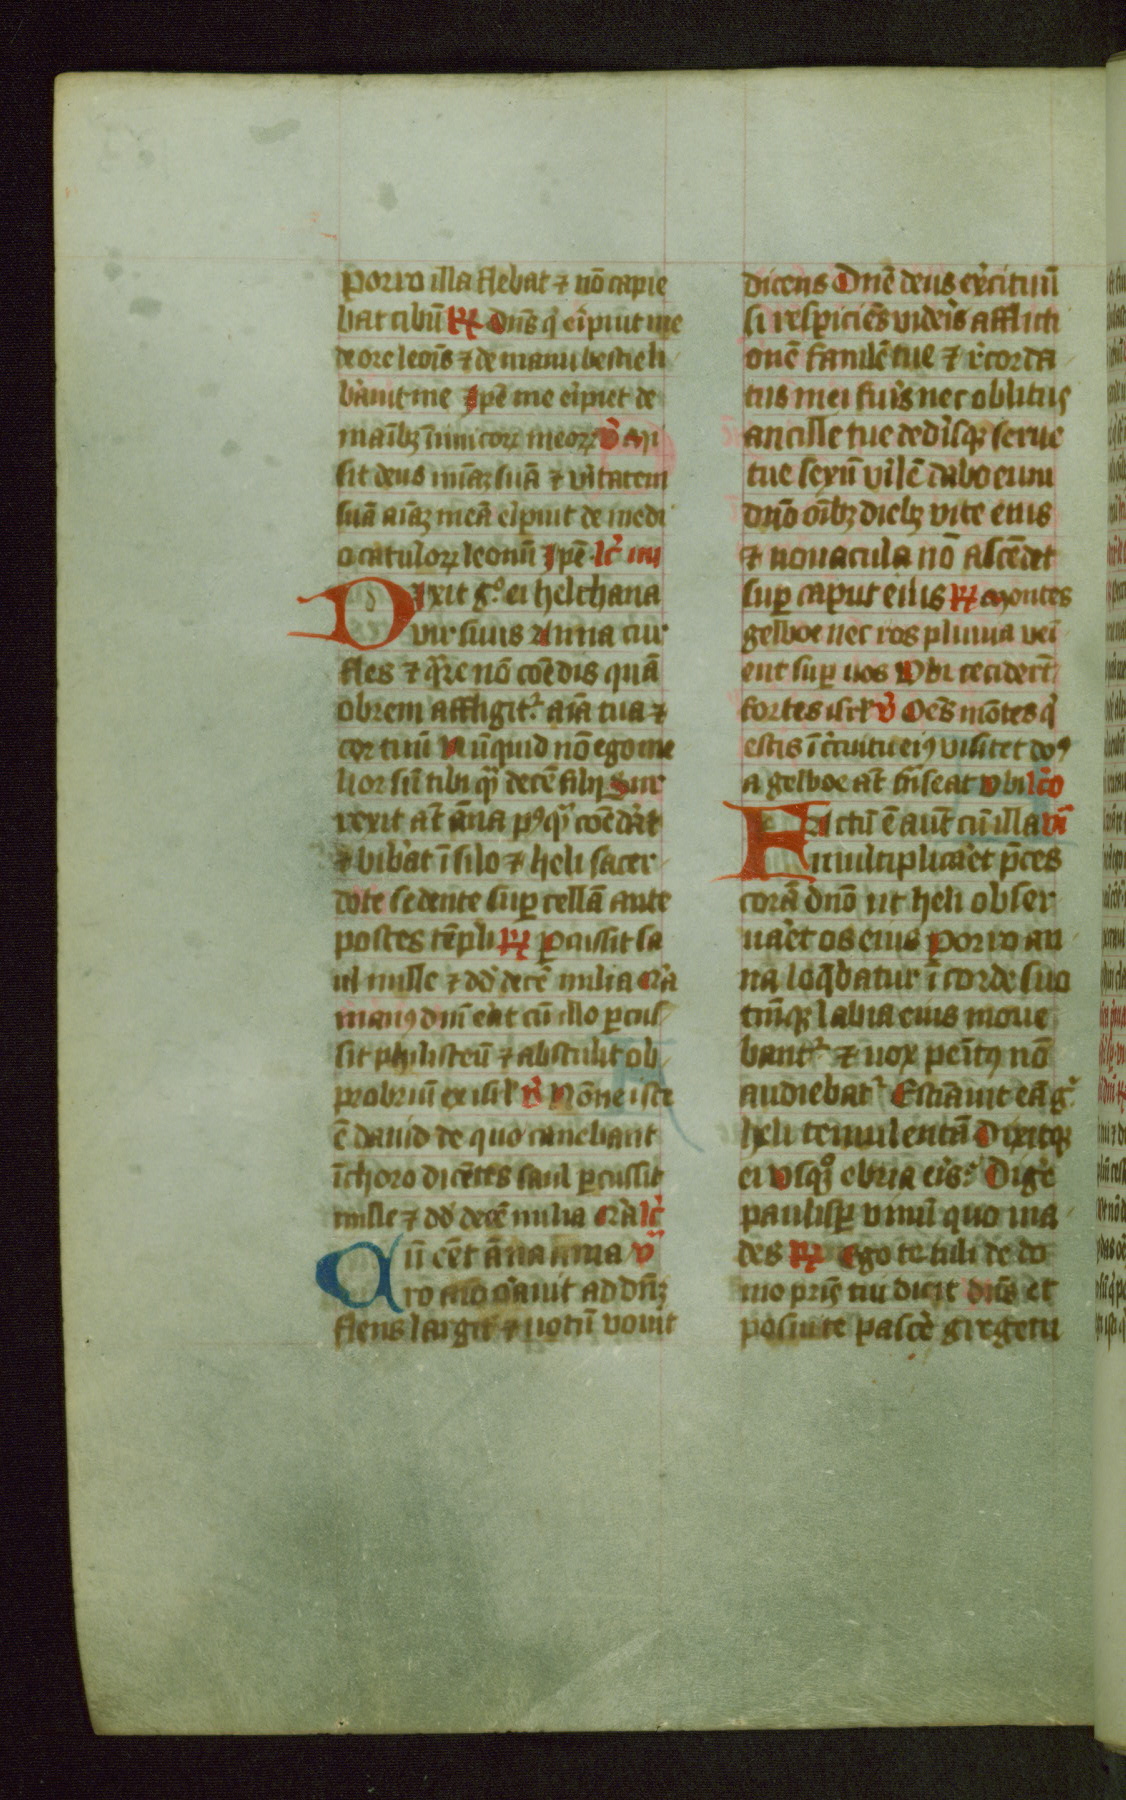 porro illa flebat ⁊ nō capie
bat cibū R̸ Dn̄s q͛ eripuit me
de ore leōis ⁊ de manu bestie li
b͛auit me Ip̄e me eripiet de
manibꝫ īimicorꝝ meorꝝ v̄ Mi
sit deus mīaꝫ suā ⁊ v͛itatem
suā aīaꝫ meā eripuit de medi
o catulorꝝ leonū Ip̄e lc̄ iiii
Dixit g° ei helchana
vir suus Anna cur
fles ⁊ q͛re nō coēdis quā
obrem affligit᷑ aīa tua ⁊
cor tuū Nūquid nō ego me
lior sū tibi qͣ decē filij Sur
rexit aūt āna pꝰqͣ coēd͛at
⁊ bib͛at ī silo ⁊ heli sacer
dote sedente suꝑ cellā ante
postes tēpli R̸ Ꝑcussit sa
ul mille ⁊ dd̄ decē milia Q͛ia
manꝰ dn̄i erat cū illo ꝑcus
sit philisteū ⁊ abstulit ob
probriū ex isrl̄ v̄ Nōne iste
ē dauid de quo canebant
ī choro dicētes saul ꝑcussit
mille ⁊ dd̄ decē milia Q͛ia lc̄
Cū eēt āna aīa ama v
ro aīo orauit ad dn̄ꝫ
flens largit᷑ ⁊ uotū vouit
dicens Dn̄e deus ex͛cituū
si respiciēs vid͛eis afflicti
onē famlē tue ⁊ r͛corda
tus mei fu͛is nec oblitus
ancille tue ded͛isqꝫ serue
tue sexū virilē dabo eum
dn̄o oībꝫ diebꝫ vite eius
⁊ nouacula nō ascēdet
suꝑ caput eius R̸ Montes
gelboe nec ros pluuia veī
ent suꝑ uos Vbi cecidert̄
fortes isrl̄ v̄ Oēs mōtes q͛
estis ī c͛cuitu eiꝰ visitet dōs
a gelboe aūt trāseat Vbi lc̄o
Factū ē aūt cū illa vi
multiplicaret p̄ces
corā dn̄o ut heli obser
uaret os eius Porro an
na loq̄batur ī corde suo
tm̄qꝫ labia eius moue
bant᷑ ⁊ uox penitꝰ nō
audiebat᷑ Estīauit eā g°
heli temulentā Dixitqꝫ
ei Vsqꝫ quo ebria eris Dig͛e
paulisꝑ vinū quo ma
des R̸ Ego te tuli de do
mo pris tui dicit dn̄s et
posui te pasc͛e gregem